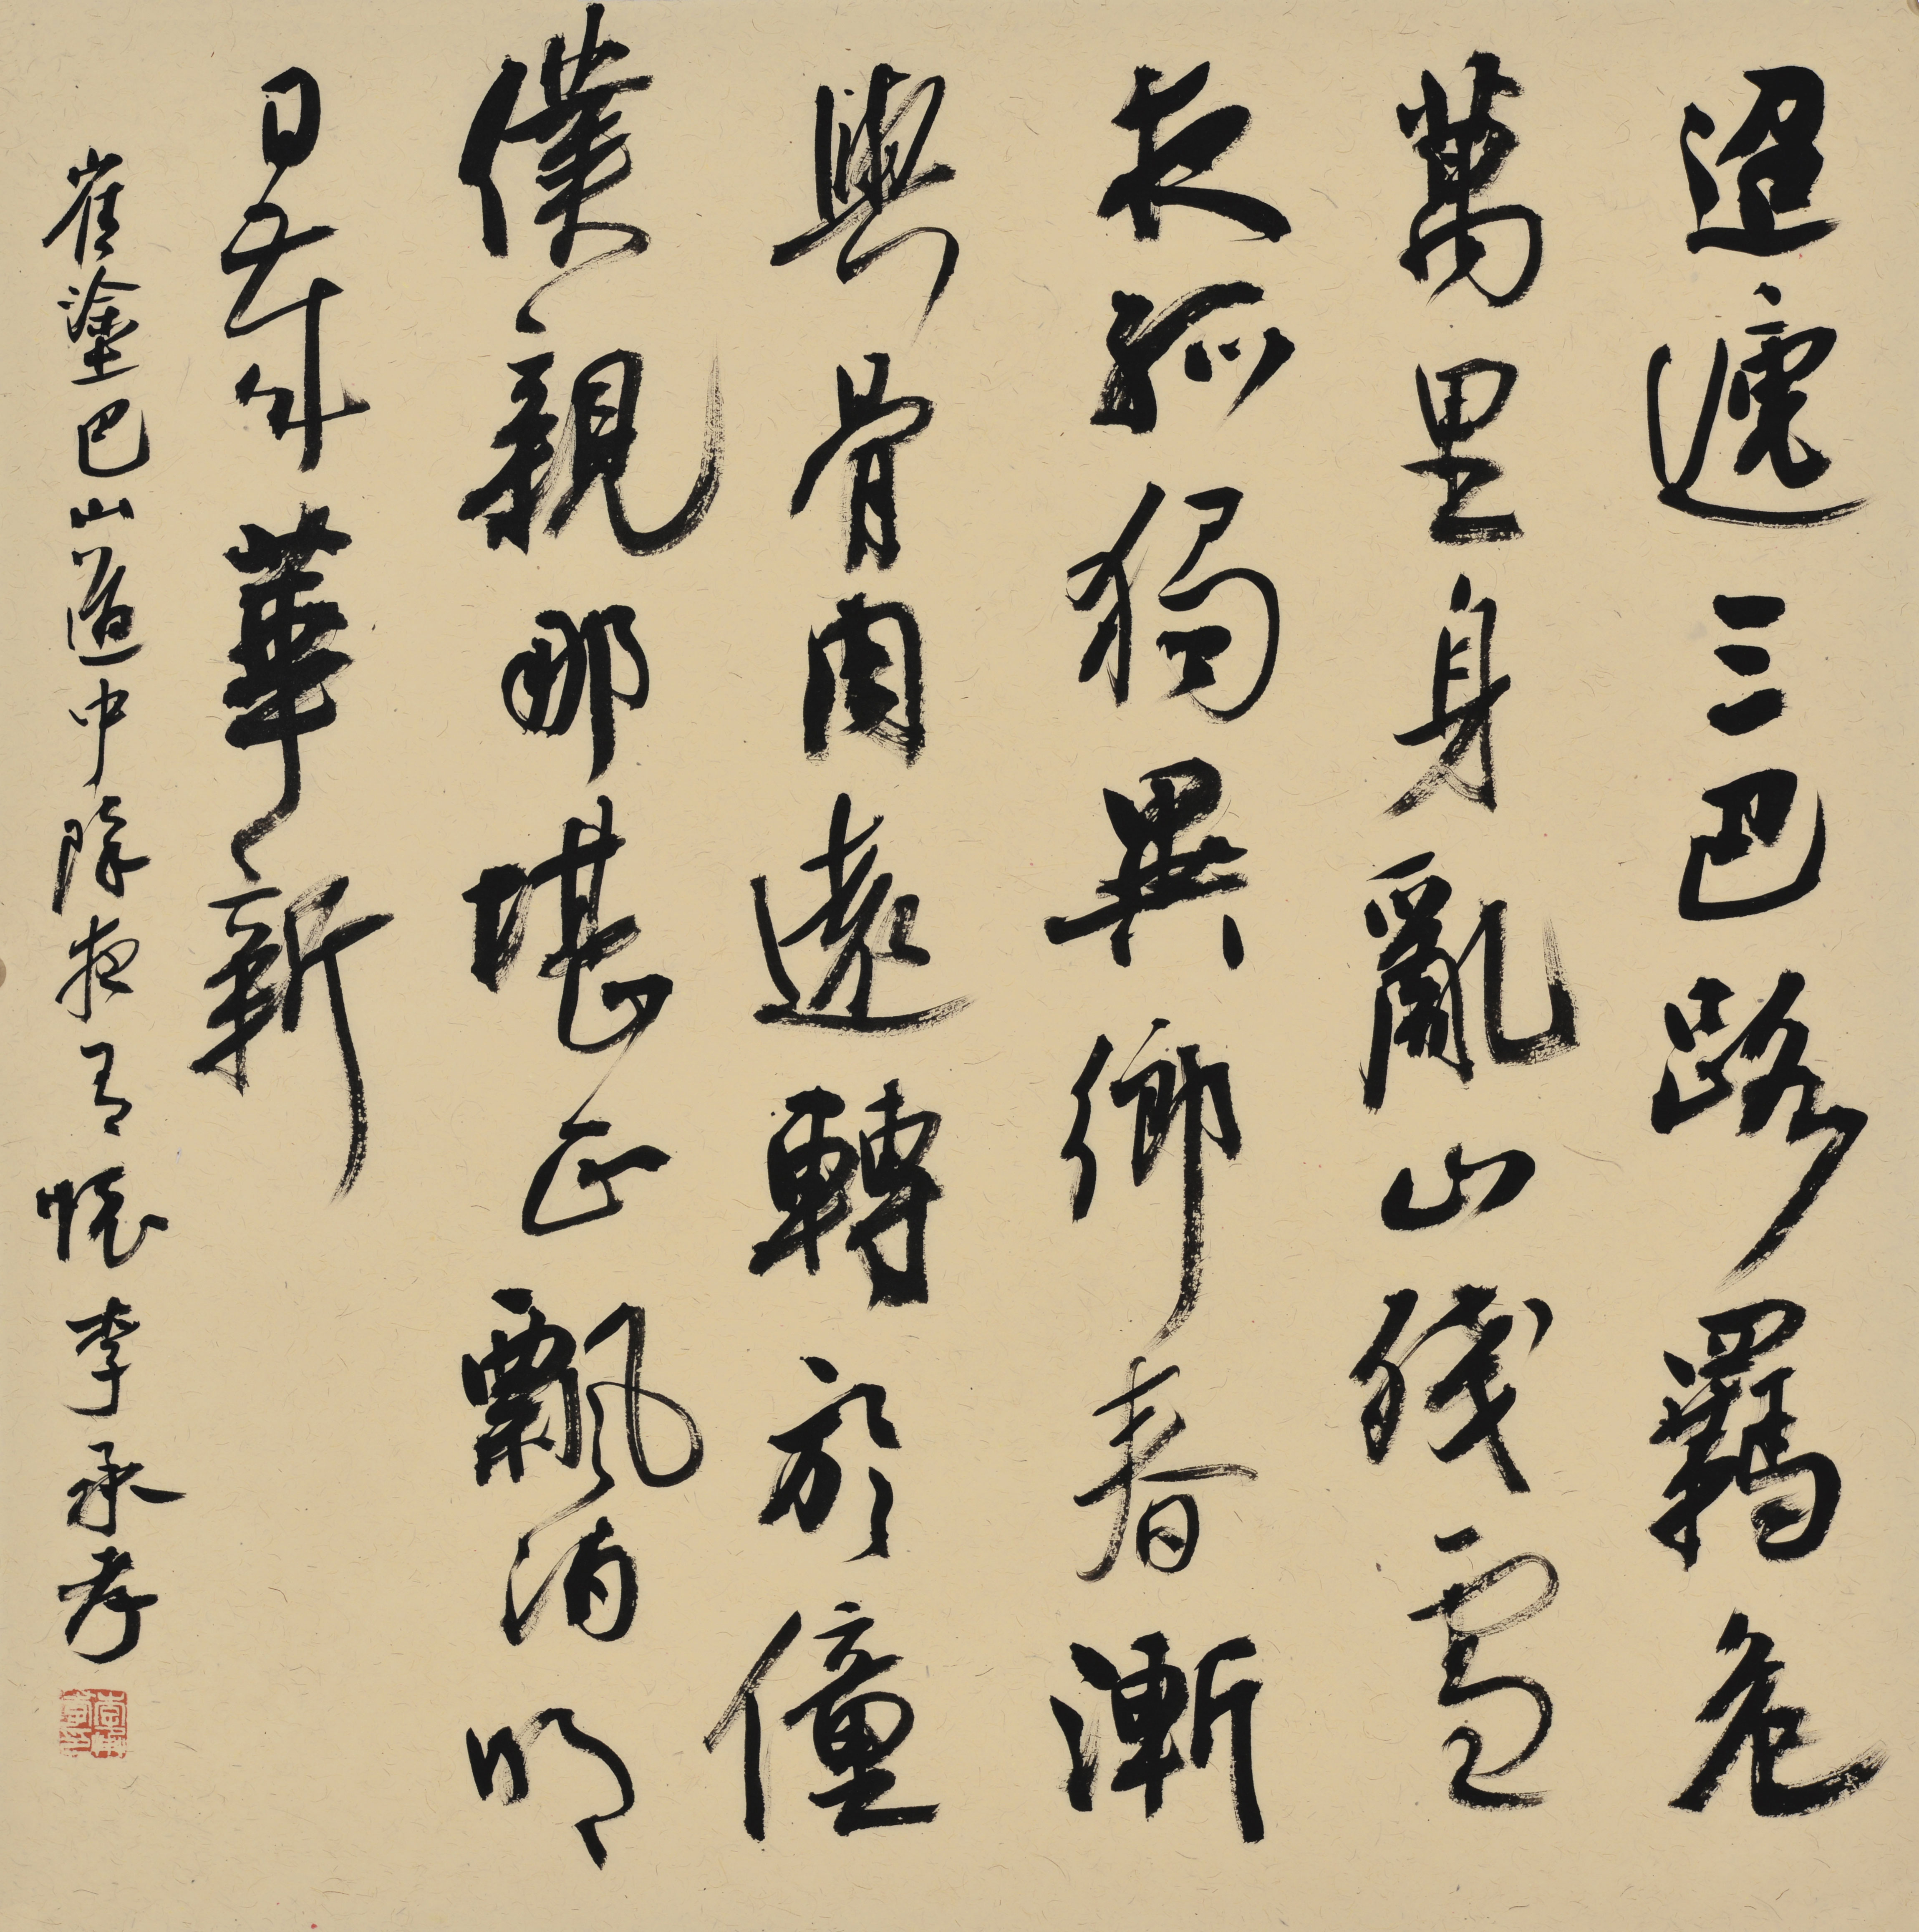 迢遞三巴路羈危
萬里身亂山殘雪
夜孤獨異鄉春漸
與骨肉遠轉於僮
僕親那堪正飄泊明
日歲華新
崔塗巴山道中除夜有懷李承孝